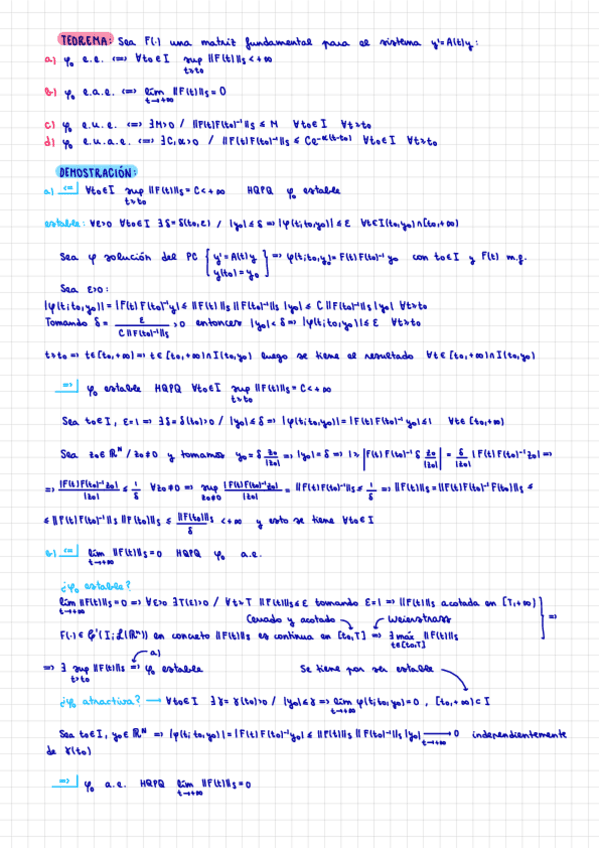 TEOREMA: Sea F(·) una matriz fundamental para el sistema y'=A(t)y:
a) φ₀ e.e. <=> ∀t₀∈I sup_{t≥t₀} ||F(t)||s < +∞
b) φ₀ e.a.e. <=> lim_{t→+∞} ||F(t)||s = 0
c) φ₀ e.u.e. <=> ∃M>0 / ||F(t)F(t₀)⁻¹||s ≤ M ∀t₀∈I ∀t≥t₀
d) φ₀ e.u.a.e. <=> ∃C,α>0 / ||F(t)F(t₀)⁻¹||s ≤ Ce^{-α(t-t₀)} ∀t₀∈I ∀t≥t₀
DEMOSTRACIÓN:
a) <=| ∀t₀∈I sup_{t≥t₀} ||F(t)||s = C < +∞ HQPQ φ₀ estable
estable: ∀ε>0 ∀t₀∈I ∃δ=δ(t₀,ε) / |y₀|≤δ => |φ(t;t₀,y₀)|≤ε ∀t∈I(t₀,y₀)∩[t₀,+∞)
Sea φ solución del PC { y'=A(t)y y(t₀)=y₀ } => φ(t;t₀,y₀)=F(t)F(t₀)⁻¹y₀ con t₀∈I y F(t) m.f.
Sea ε>0:
|φ(t;t₀,y₀)| = |F(t)F(t₀)⁻¹y₀| ≤ ||F(t)||s ||F(t₀)⁻¹||s |y₀| ≤ C||F(t₀)⁻¹||s |y₀| ∀t≥t₀
Tomando δ = ε / C||F(t₀)⁻¹||s > 0 entonces |y₀|<δ => |φ(t;t₀,y₀)|≤ε ∀t≥t₀
t≥t₀ => t∈[t₀,+∞) => t∈[t₀,+∞)∩I(t₀,y₀) luego se tiene el resultado ∀t∈[t₀,+∞)∩I(t₀,y₀)
=>| φ₀ estable HQPQ ∀t₀∈I sup_{t≥t₀} ||F(t)||s = C < +∞
Sea t₀∈I, ε=1 => ∃δ=δ(t₀)>0 / |y₀|≤δ => |φ(t;t₀,y₀)| = |F(t)F(t₀)⁻¹y₀|≤1 ∀t∈[t₀,+∞)
Sea z₀∈ℝᴺ / z₀≠0 y tomamos y₀ = δ z₀/|z₀| => |y₀|=δ => 1≥ |F(t)F(t₀)⁻¹ δ z₀/|z₀|| = δ/|z₀| |F(t)F(t₀)⁻¹z₀| =>
=> |F(t)F(t₀)⁻¹z₀|/|z₀| ≤ 1/δ ∀z₀≠0 => sup_{z₀≠0} |F(t)F(t₀)⁻¹z₀|/|z₀| = ||F(t)F(t₀)⁻¹||s ≤ 1/δ => ||F(t)||s = ||F(t)F(t₀)⁻¹F(t₀)||s ≤
≤ ||F(t)F(t₀)⁻¹||s ||F(t₀)||s ≤ ||F(t₀)||s/δ < +∞ y esto se tiene ∀t₀∈I
b) <=| lim_{t→+∞} ||F(t)||s = 0 HQPQ φ₀ a.e.
¿φ₀ estable?
lim_{t→+∞} ||F(t)||s = 0 => ∀ε>0 ∃T(ε)>0 / ∀t>T ||F(t)||s≤ε tomando ε=1 => ||F(t)||s acotada en [T,+∞) } =>
Cerrado y acotado Weierstrass
F(·)∈ℓ¹(I;ℒ(ℝᴺ)) en concreto ||F(t)||s es continua en [t₀,T] => ∃ máx_{t∈[t₀,T]} ||F(t)||s
a)
=> ∃ sup_{t≥t₀} ||F(t)||s => φ₀ estable Se tiene por ser estable
¿φ₀ atractiva? → ∀t₀∈I ∃γ=γ(t₀)>0 / |y₀|≤γ => lim_{t→+∞} φ(t;t₀,y₀)=0, [t₀,+∞)⊂I
Sea t₀∈I, y₀∈ℝᴺ => |φ(t;t₀,y₀)| = |F(t)F(t₀)⁻¹y₀| ≤ ||F(t)||s ||F(t₀)⁻¹||s |y₀| →_{t→+∞} 0 independientemente
de γ(t₀)
=>| φ₀ a.e. HQPQ lim_{t→+∞} ||F(t)||s = 0